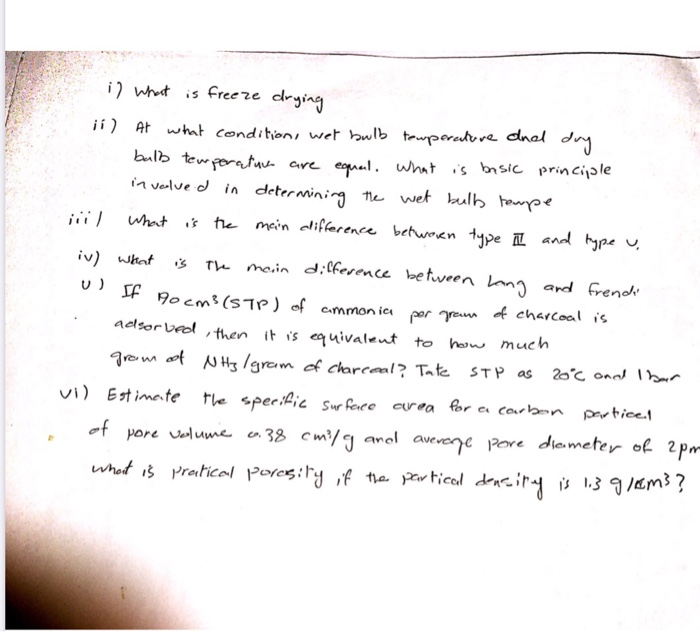 i) What is freeze drying
ii) At what condition, wet bulb temperature and dry
bulb temperature are equal. What is basic principle
involved in determining the wet bulb tempe
iii) What is the main difference between type III and type V.
iv) What is The main difference between Lang and frendi
v) If 90cm³ (STP) of ammonia per gram of charcoal is
adsorbed, then it is equivalent to how much
gram of NH3/gram of charcoal? Take STP as 20°C and 1 bar
vi) Estimate the specific surface area for a carbon particel
of pore volume 0.38 cm³/g and average pore diameter of 2pm
what is pratical porosity, if the partical density is 1.3 g/cm³?